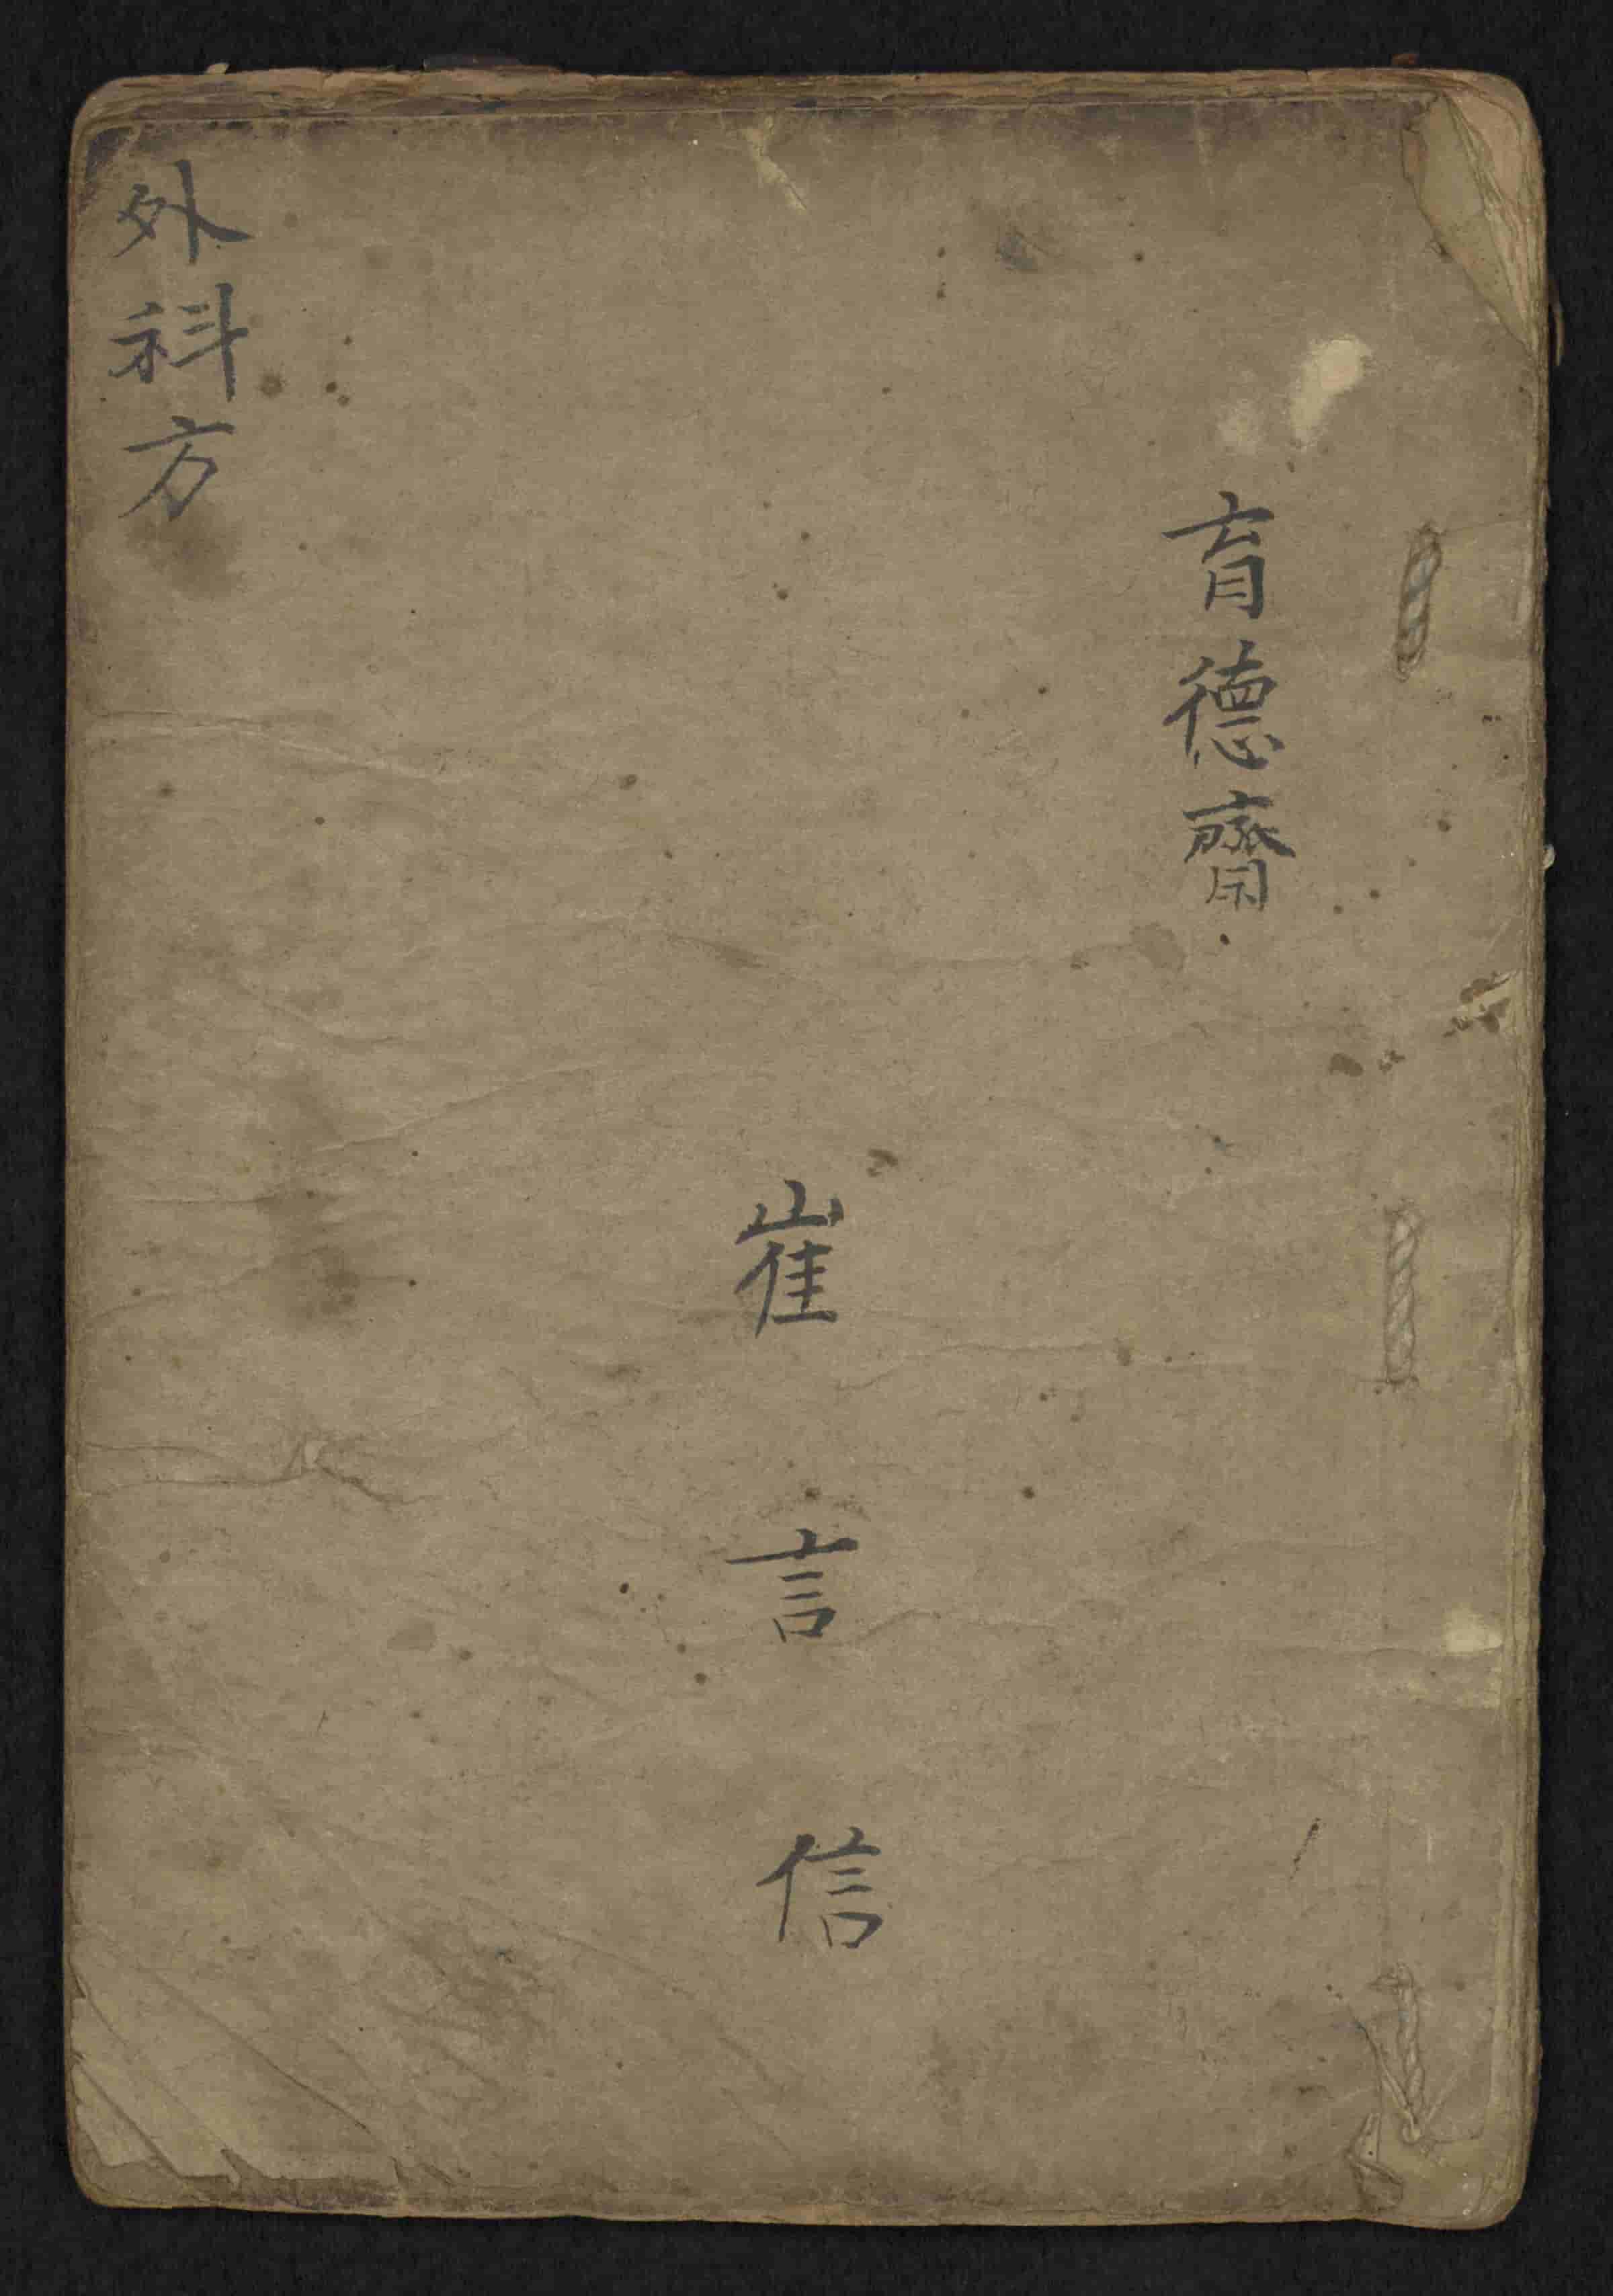 育德齋
崔言信
外科方